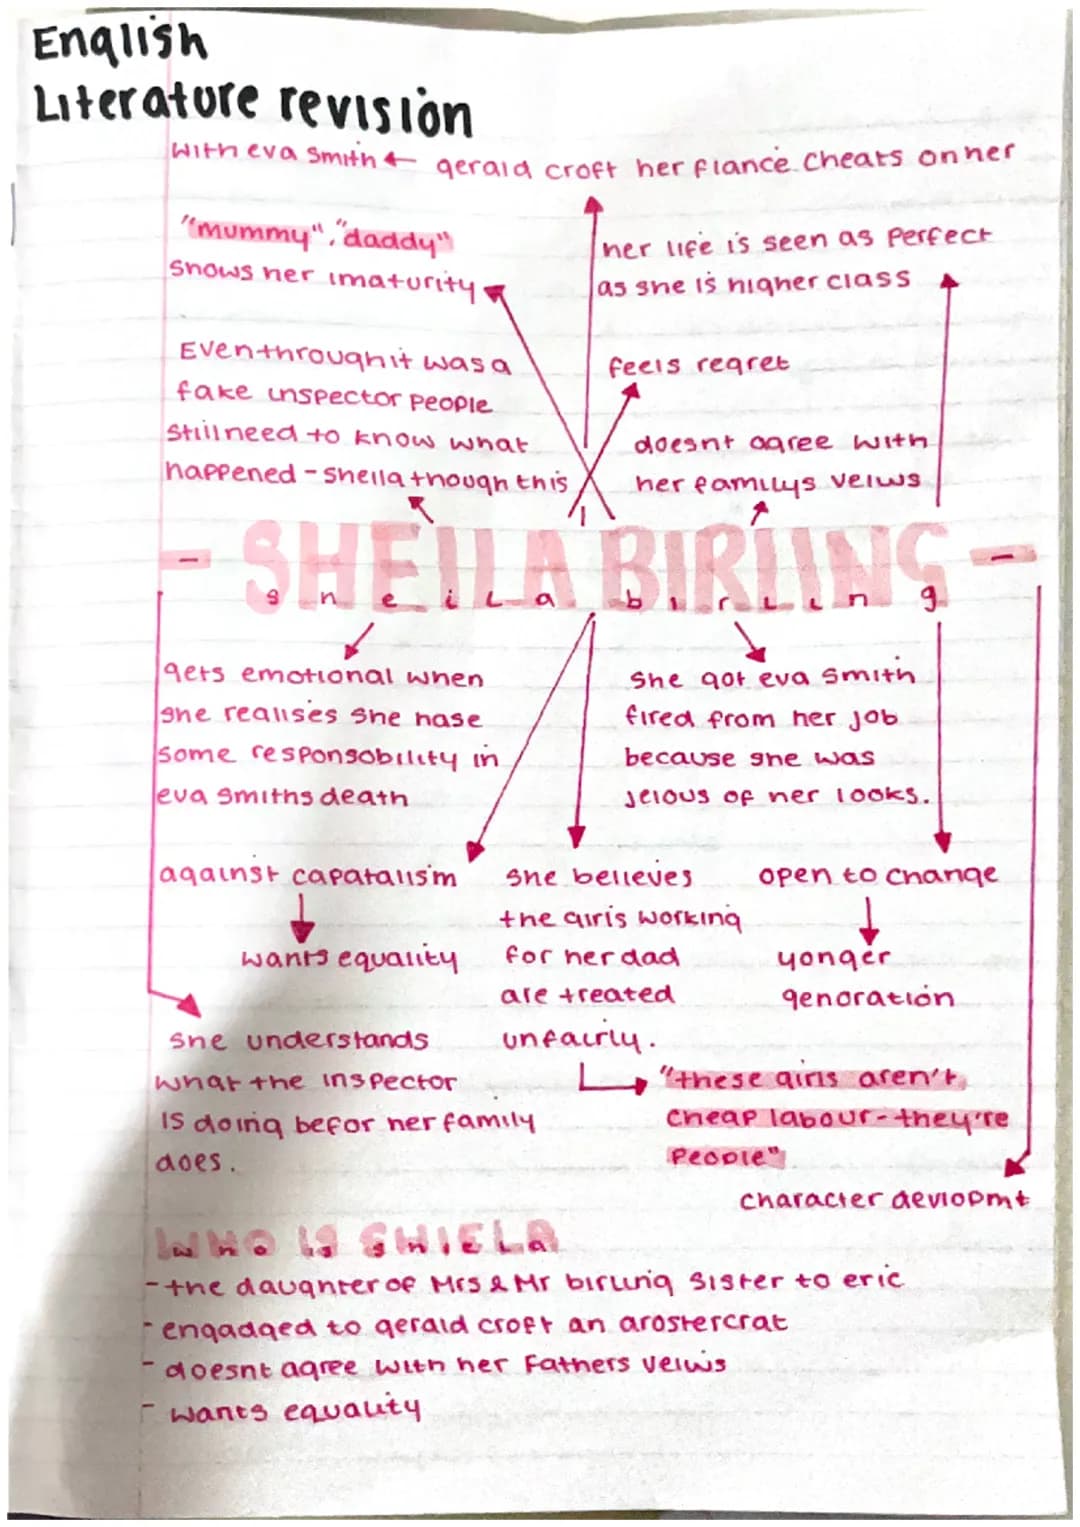 English
Literature revision
with eva smith ← gerald croft her fiance cheats on her
"mummy", "daddy"
shows her imaturity
her life is seen as perfect
as she is higher class
Eventhrough it was a
fake inspector people
still need to know what
happened - sheila though this
feels regret
doesnt agree with
her familys veiws
- SHEILA BIRLING -
sheila birling
gets emotional when
she realises she hase
some responsobility in
eva smiths death
she got eva smith
fired from her job
because she was
jelous of her looks.
against capatalism
wants equality
she believes
the girls working
for her dad
are treated
unfairly.
"these girls aren't
cheap labour - they're
people"
open to change
yonger
genoration
she understands
what the inspector
is doing befor her family
does.
character devlopmt
WHO IS SHIELA
who is shiela
- the daughter of Mrs & Mr birling sister to eric
- engadged to gerald croft an arostercrat
- doesnt agree with her Fathers veiws
- wants equality